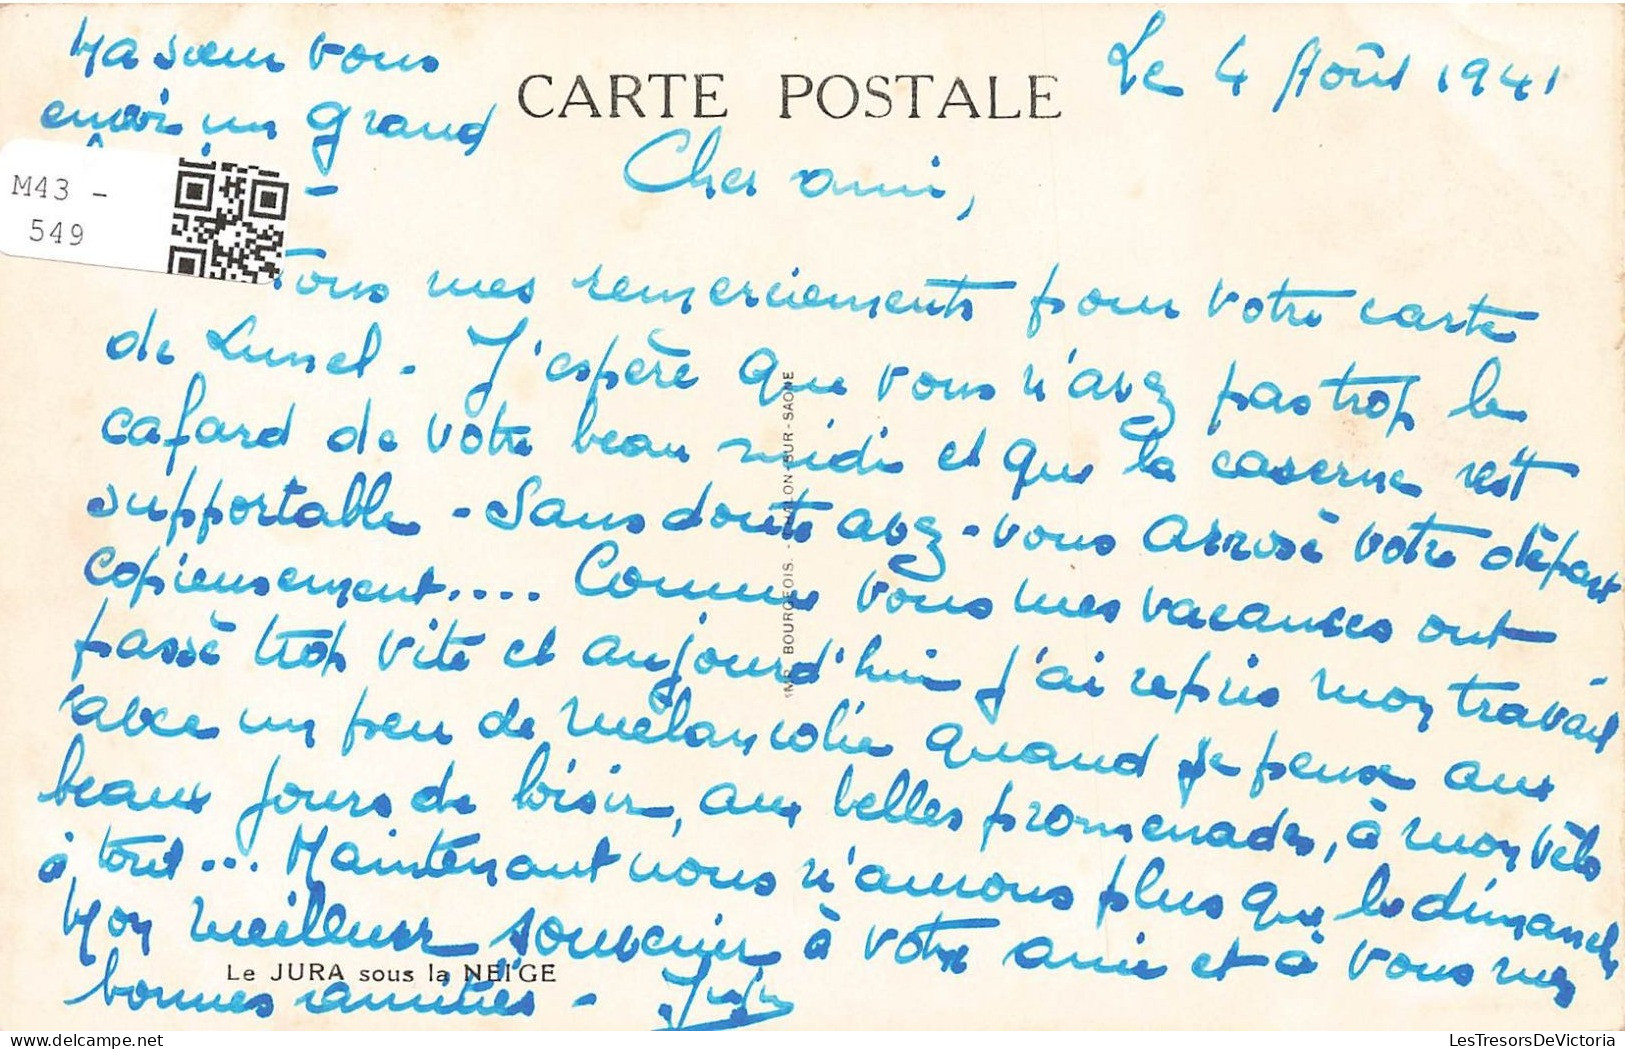 Le 4 Août 1941
Ma sœur vous
envoi un grand
CARTE POSTALE
Cher ami,
M43 -
549
Tous mes remerciements pour votre carte
de Lunel - J'espère que vous n'avez pas trop le
cafard de votre beau midi et que la caserne est
supportable - Sans doute avez-vous arrosé votre départ
copieusement.... Comme vous mes vacances ont
passé trop vite et aujourd'hui j'ai repris mon travail
avec un peu de mélancolie quand je pense aux
beaux jours de loisir, aux belles promenades, à mon vélo
à tout... Maintenant nous n'aurons plus que le dimanche
Mon meilleur souvenir à votre amie et à vous mes
bonnes amitiés -
Le JURA sous la NEIGE
IMP. BOURGEOIS. - CHALON-SUR-SAONE
LesTresorsDeVictoria